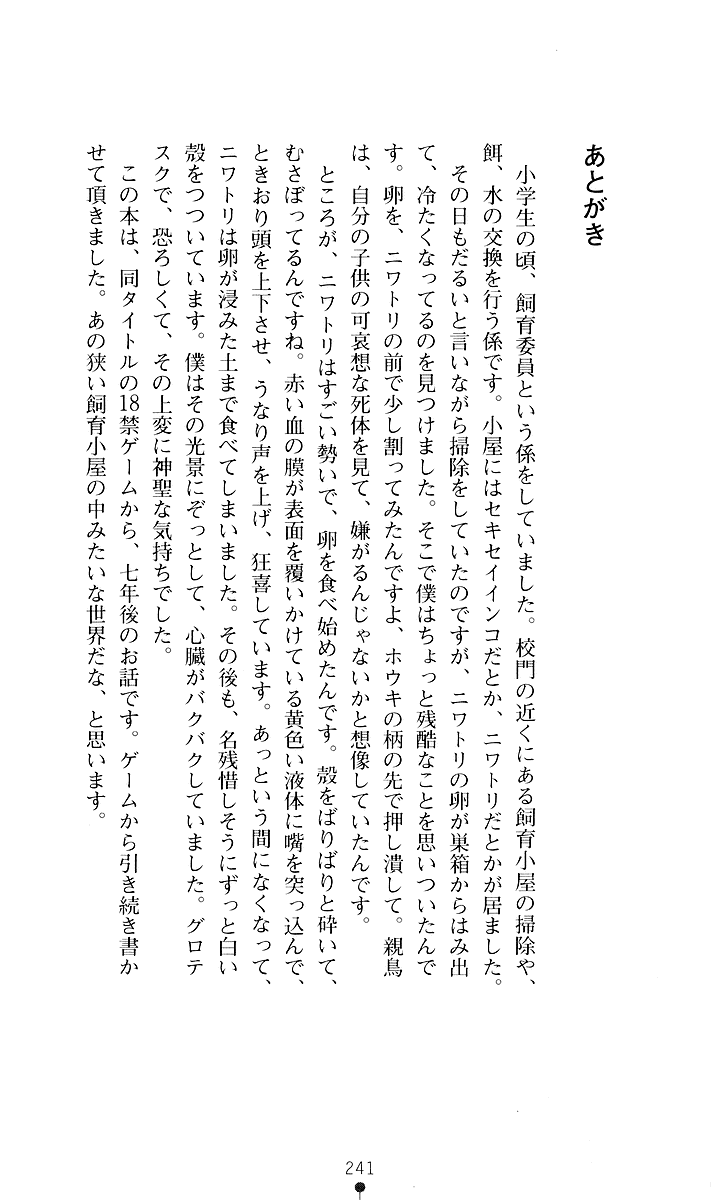 あとがき
小学生の頃、飼育委員という係をしていました。校門の近くにある飼育小屋の掃除や、
餌、水の交換を行う係です。小屋にはセキセイインコだとか、ニワトリだとかが居ました。
その日もだるいと言いながら掃除をしていたのですが、ニワトリの卵が巣箱からはみ出
て、冷たくなってるのを見つけました。そこで僕はちょっと残酷なことを思いついたんで
す。卵を、ニワトリの前で少し割ってみたんですよ、ホウキの柄の先で押し潰して。親鳥
は、自分の子供の可哀想な死体を見て、嫌がるんじゃないかと想像していたんです。
ところが、ニワトリはすごい勢いで、卵を食べ始めたんです。殻をばりばりと砕いて、
むさぼってるんですね。赤い血の膜が表面を覆いかけている黄色い液体に嘴を突っ込んで、
ときおり頭を上下させ、うなり声を上げ、狂喜しています。あっという間になくなって、
ニワトリは卵が浸みた土まで食べてしまいました。その後も、名残惜しそうにずっと白い
殻をつついています。僕はその光景にぞっとして、心臓がバクバクしていました。グロテ
スクで、恐ろしくて、その上変に神聖な気持ちでした。
この本は、同タイトルの18禁ゲームから、七年後のお話です。ゲームから引き続き書か
せて頂きました。あの狭い飼育小屋の中みたいな世界だな、と思います。
241